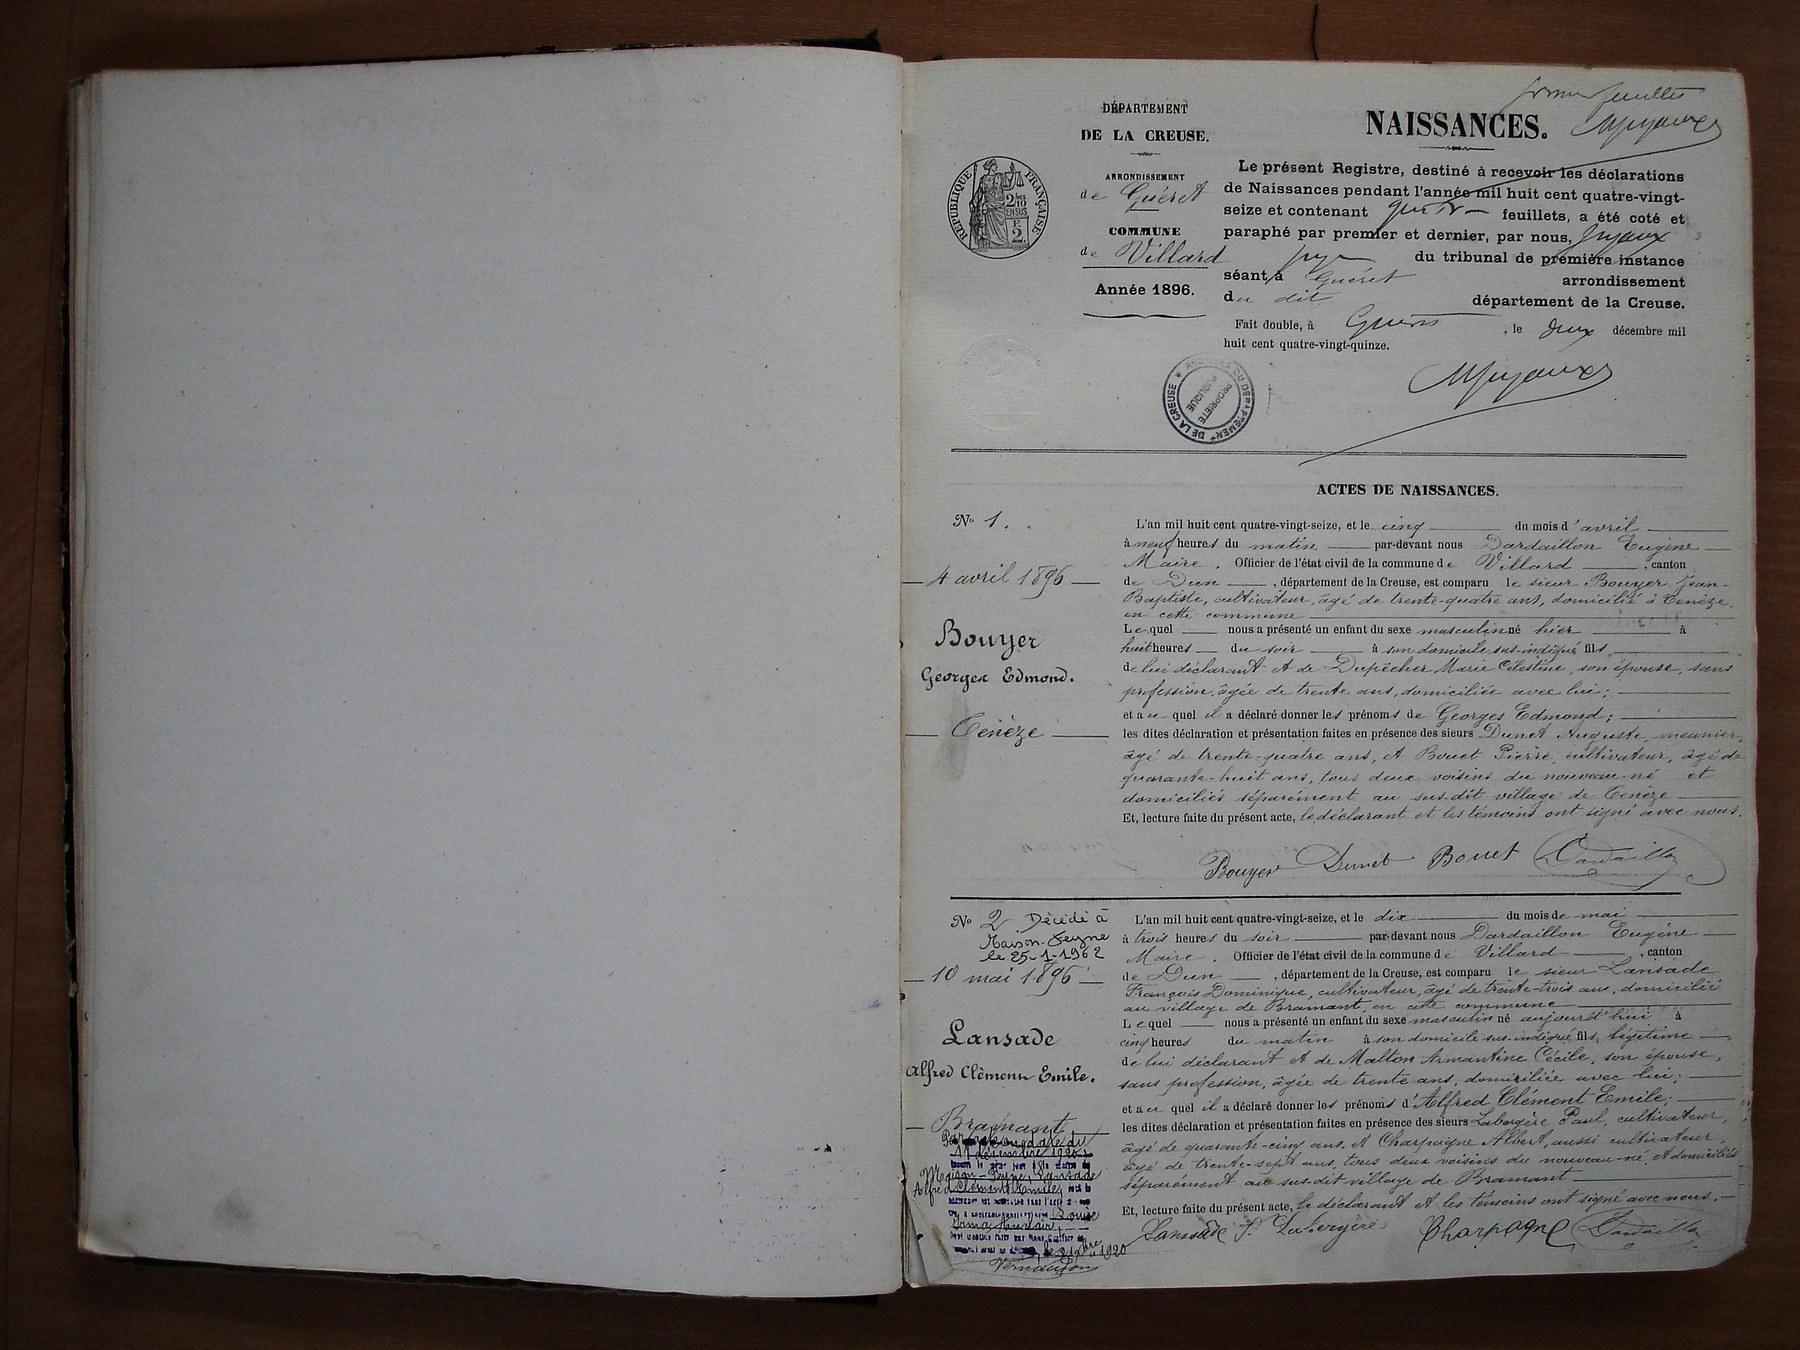 DÉPARTEMENT
DE LA CREUSE.
ARRONDISSEMENT
de Guéret
COMMUNE
de Villard
Année 1896.
RÉPUBLIQUE FRANÇAISE
NAISSANCES.
Le présent Registre, destiné à recevoir les déclarations
de Naissances pendant l'année mil huit cent quatre-vingt-
seize et contenant feuillets, a été coté et
paraphé par premier et dernier, par nous,
juge du tribunal de première instance
séant à Guéret arrondissement
du dit département de la Creuse.
Fait double, à Guéret, le deux décembre mil
huit cent quatre-vingt-quinze.
ARCHIVES DU DEPARTEMENT DE LA CREUSE
PROPRIETE PUBLIQUE
ACTES DE NAISSANCES.
No 1.
4 avril 1896
Bouyer
Georges Edmond.
Cenèze
L'an mil huit cent quatre-vingt-seize, et le cinq du mois d'avril
à neuf heures du matin par-devant nous Dardaillon Eugène
Maire. Officier de l'état civil de la commune de Villard, canton
de Dun, département de la Creuse, est comparu le sieur Bouyer Jean-
Baptiste, cultivateur, âgé de trente-quatre ans, domicilié à Cenèze
en cette commune
Lequel nous a présenté un enfant du sexe masculin né hier à
huit heures du soir à son domicile sus-indiqué fils
de lui déclarant et de Dupêcher Marie Célestine, son épouse, sans
profession, âgée de trente ans, domiciliée avec lui;
et au quel il a déclaré donner les prénoms de Georges Edmond;
les dites déclaration et présentation faites en présence des sieurs Dunet Auguste, meunier,
âgé de trente-quatre ans, et Bouet Pierre, cultivateur, âgé de
quarante-huit ans, tous deux voisins du nouveau-né et
domiciliés séparément au sus-dit village de Cenèze
Et, lecture faite du présent acte, le déclarant et les témoins ont signé avec nous.
Bouyer Dunet Bouet Dardaillon
No 2 Décédé à
Maison-Feyne
le 25-1-1962
10 mai 1896
Lansade
Alfred Clément Emile.
Bramant
L'an mil huit cent quatre-vingt-seize, et le dix du mois de mai
à trois heures du soir par-devant nous Dardaillon Eugène
Maire. Officier de l'état civil de la commune de Villard, canton
de Dun, département de la Creuse, est comparu le sieur Lansade
François Dominique, cultivateur, âgé de trente-trois ans, domicilié
au village de Bramant, en cette commune
Lequel nous a présenté un enfant du sexe masculin né aujourd'hui à
cinq heures du matin à son domicile sus-indiqué fils légitime
de lui déclarant et de Malton Armantine Cécile, son épouse,
sans profession, âgée de trente ans, domiciliée avec lui;
et au quel il a déclaré donner les prénoms d'Alfred Clément Emile;
les dites déclaration et présentation faites en présence des sieurs Labergère Paul, cultivateur,
âgé de quarante-cinq ans, et Charpagne Albert, aussi cultivateur,
âgé de trente-sept ans, tous deux voisins du nouveau-né, et domiciliés
séparément au sus-dit village de Bramant
Et, lecture faite du présent acte, le déclarant et les témoins ont signé avec nous.
Lansade P. Labergère Charpagne Dardaillon
Maison-Feyne, Lansade
Alfred Clément Emile
Louise
Irma
1920